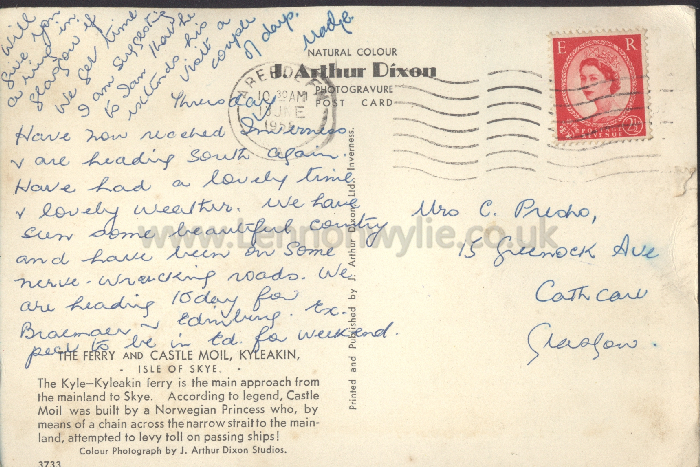 Will
give you
a ring in
Glasgow if
we get time
I am suggesting
to Ian that he
extends his
visit a
couple
of days.
Madge.
NATURAL COLOUR
J. Arthur Dixon
PHOTOGRAVURE
POST CARD
E R
POSTAGE
REVENUE
2½
ABERDEEN
10.30AM
JNE
Thursday
Have now reached Inverness
& are heading South again.
Have had a lovely time
& lovely weather. We have
seen some beautiful country
and have been on some
nerve-wrecking roads. We
are heading today for
Braemar & Edinburg. Ex-
pect to be in Ed. for weekend.
Mrs C.
15 Greenock Ave
Cathcart
Glasgow.
Printed and Published by J. Arthur Dixon Ltd., Inverness.
www.Lennonwylie.co.uk
THE FERRY AND CASTLE MOIL, KYLEAKIN,
· ISLE OF SKYE. ·
The Kyle—Kyleakin ferry is the main approach from
the mainland to Skye. According to legend, Castle
Moil was built by a Norwegian Princess who, by
means of a chain across the narrow strait to the main-
land, attempted to levy toll on passing ships!
Colour Photograph by J. Arthur Dixon Studios.
3733